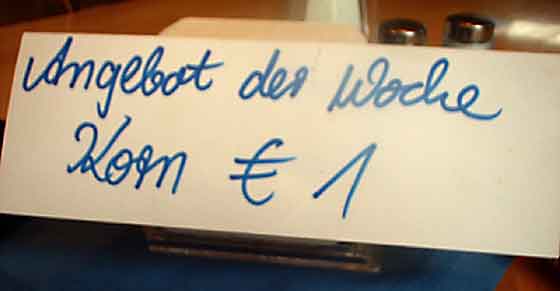 Angebot der Woche
Korn € 1